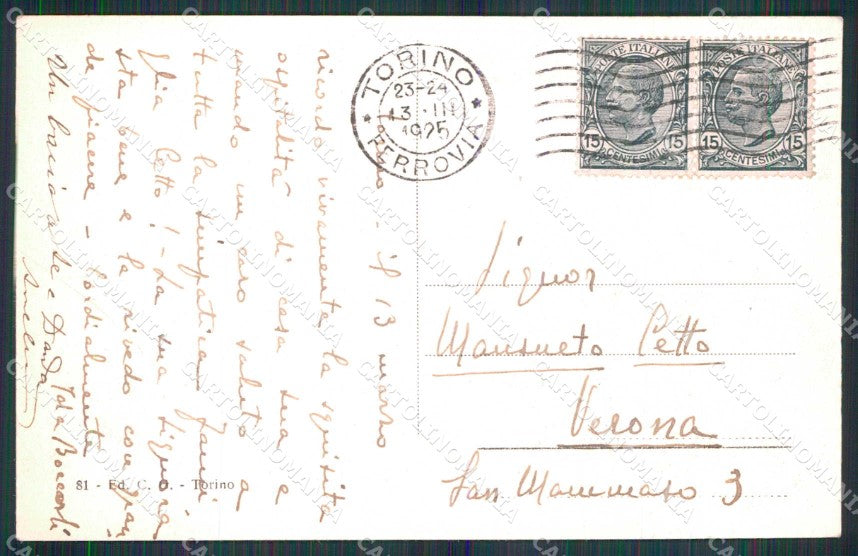 Torino - il 13 marzo
ricordo vivamente la squisita
ospitalità di casa sua e
mando un caro saluto a
tutta la simpatica fami
glia Cetto! - La sua signora
sta bene e la rivedo con gran
de piacere - Cordialmente
Ida
Un bacio a Lei e Danda
TORINO
23-24
13 · III
1925
FERROVIA
POSTE ITALIANE
15 CENTESIMI 15
POSTE ITALIANE
15 CENTESIMI 15
Signor
Mansueto Cetto
Verona
San Mammaso 3
81 - Ed. C. G. - Torino
CARTOLINOMANIA